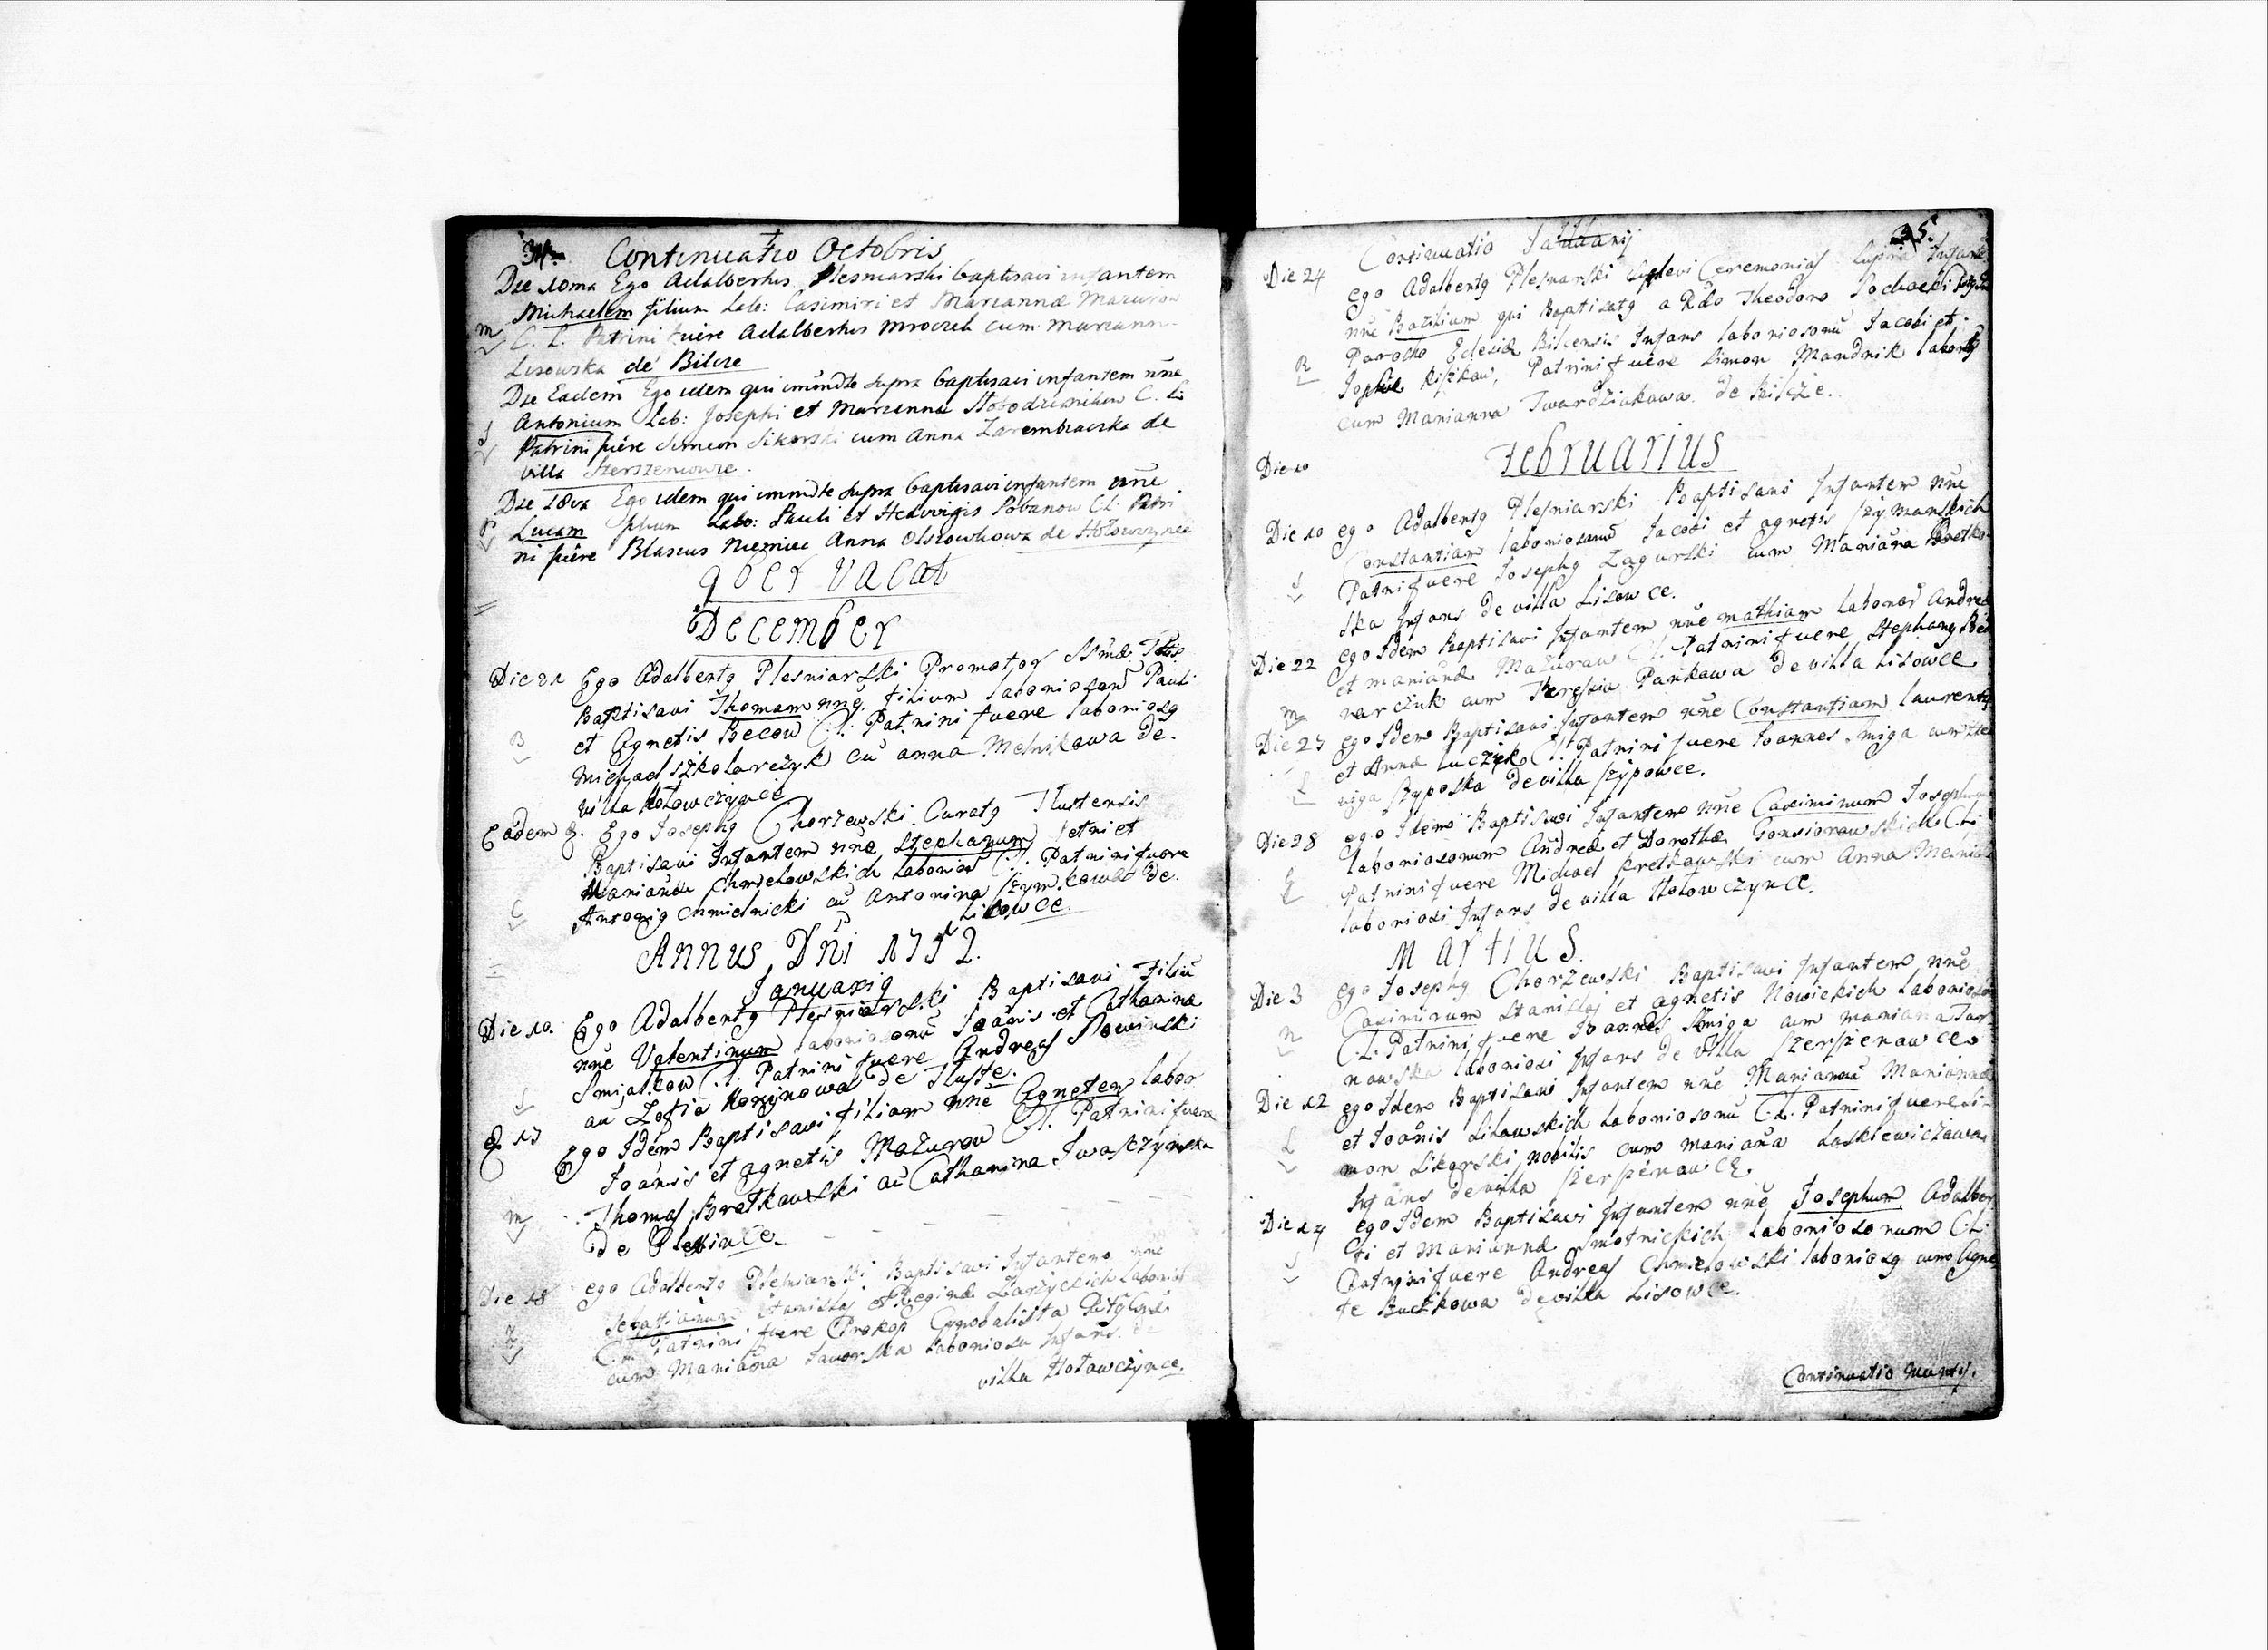 34. Continuatio Octobris
Die 10ma Ego Adalbertus Plesniarski baptisavi infantem
Michaelem filium Labo: Casimiri et Mariannæ Mazurow
C. L. Patrini fuere Adalbertus Mroczek cum Mariann
Lisowska de Bilcze
Die Eadem Ego idem qui immdte supra baptisavi infantem nne
Antonium Lab: Josephi et Marianna C. L.
Patrini fuere Simeon Sikorski cum Anna Zarembianka de
villa Szerszeniowce.
Die 18va Ego idem qui immdte supra baptisavi infantem nne
Lucam filium Labo: Pauli et Hedvvigis C.L. Patri
ni fuere Blasius Niemiec Anna Olszowkowa de Hołowczynce
9ber vacat
December
Die 21 Ego Adalbertg Plesniarski Promotor SSmæ
Baptisavi Thomam nne. filium laboriosorū Pauli
et Agnetis Becow C.L. Patrini fuere laboriosg
Michael Szkolarczyk cū anna Melnikowa de
villa Hołowczynce
Eadem &. Ego Josephg Chorzewski Curatg Tlustensis
Baptisavi Infantem nne Stephanum Petri et
Marianæ Chmielowskich laborios C.L. Patrini fuere
Antonig Chmielnicki cū Antonina Szymkowa de
Lisowce.
Annus Dni 1752.
Januarig
Die 10. Ego Adalbertg Plesniarski Baptisavi Filiū
nne Valentinum laboriosorū Joānis et Catharinæ
Smijałkow C.L. Patrini fuere Andreas Nowinski
cū Zofia de Tłuste.
& 17 Ego Idem Baptisavi filiam nne Agnetem labor
Joānis et agnetis Mazurow C.L. Patrini fuere
Thomas Bretkowski cū Catharina Iwaszczynska
de
Die 18 ego Adalbertg Plesniarski Baptisavi Infantem nne
Sebastianum Stanislaj et Reginæ Zarzyckich laborios
C.L. Patrini fuere Prokop Cymbalista
cum Mariāna Jaworska laboriosa Infans. de
villa Hołowczynce.
35.
Continuatio Januarij
Die 24 ego Adalbertg Plesniarski Supplevi Ceremonias supra Infante
nne Bazilium qui Baptisatg a Rdo Theodoro
Parocho Eclesiæ Bilcensis Infans laboriosorū Jacobi et
Sophiæ Patrini fuere Simon Mandrik laborsg
cum Marianna Twardziakowa. de Bilcze.
Februarius
Die 10
Die 10 ego Adalbertg Plesniarski Baptisavi Infantem nne
Constantiam laboriosorū Jacobi et agnetis Szymanskich
Patrni fuere Josephg Zagurski cum Mariāna Bretko
ska Infans de villa Lisowce.
Die 22 ego Idem Baptisavi Infantem nne mathiam laborios Andreæ
et marianæ Mazurow C.L. Patrini fuere Stephang
narczuk cum Theresia Pankowa de villa Lisowce
Die 27 ego Idem Baptisavi Infantem nne Constantiam laurentij
et Annæ luczyk C.L. Patrini fuere Joannes Smiga cum Hed
viga Szyposka de villa Szypowce.
Die 28 ego Idem Baptisavi Infantem nne Casimirum Josephum
laboriosorum Andreæ et Dorothæ Gonsiorowskich C.L.
Patrini fuere Michael Bretkowski cum Anna
laboriosi Infans de villa Hołowczynce.
Martius.
Die 3 ego Josephg Chorzewski Baptisavi Infantem nne
Casimirum Stanislaj et agnetis Nowickich laborios
C.L. Patrini fuere Joannes Smiga cum mariana Tar
nowska laboriosi Infans de villa Szerszenowce
Die 12 ego Idem Baptisavi Infantem nne Mariannā Mariannæ
et Joānis Lisowskich laboriosorū C.L. Patrini fuere Si-
mon Sikorski nobilis cum mariāna Laskiewiczowa
Infans de villa Szerszenowce.
Die 14 ego Idem Baptisavi Infantem nne Josephum Adalber
ti et Mariannæ Smotrickich laboriosorum C.L.
Patrini fuere Andreas Chmielowski laboriosg cum Agne
te Buczkowa de villa Lisowce.
Continuatio Martij.